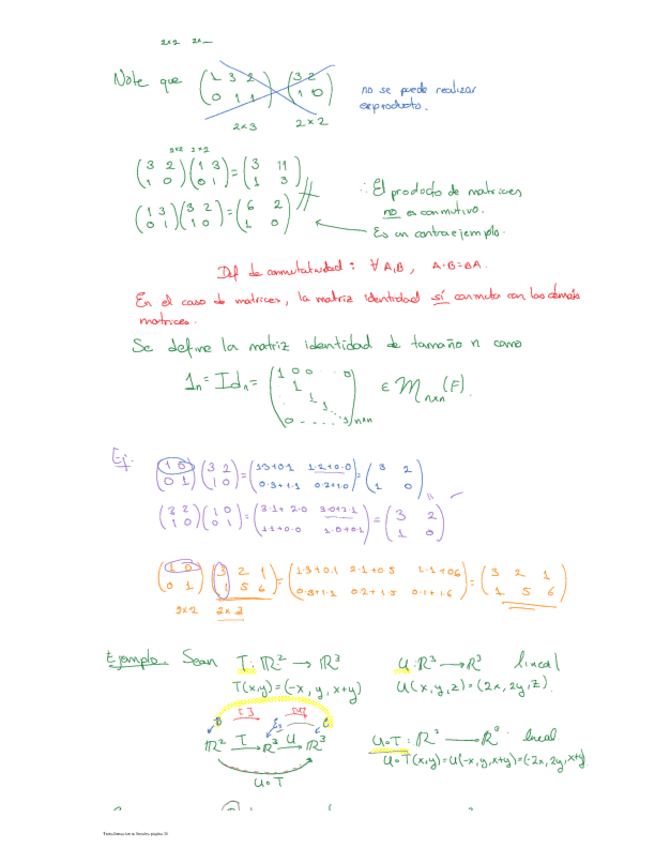 2×2 2×_
Note que (1 3 2 / 0 1 1) (3 2 / 1 0) no se puede realizar
el producto.
2×3 2×2
2×2 2×2
(3 2 / 1 0)(1 3 / 0 1) = (3 11 / 1 3)
∴ El producto de matrices
(1 3 / 0 1)(3 2 / 1 0) = (6 2 / 1 0) no es conmutivo.
Es un contraejemplo.
Def de conmutatividad: ∀A,B, A·B=BA.
En el caso de matrices, la matriz identidad sí conmuta con las demás
matrices.
Se define la matriz identidad de tamaño n como
1n = Idn = (1 0 0 ... 0 / 1 / 1 / 1 / 0 .... 1)n×n ∈ Mn×n(F).
Ej.
(1 0 / 0 1)(3 2 / 1 0) = (1·3+0·1 1·2+0·0 / 0·3+1·1 0·2+1·0) = (3 2 / 1 0)
(3 2 / 1 0)(1 0 / 0 1) = (3·1+2·0 3·0+2·1 / 1·1+0·0 1·0+0·1) = (3 2 / 1 0)
(1 0 / 0 1)(3 2 1 / 1 5 6) = (1·3+0·1 2·1+0·5 1·1+0·6 / 0·3+1·1 0·2+1·5 0·1+1·6) = (3 2 1 / 1 5 6)
2×2 2×3
Ejemplo. Sean T: R² → R³ U: R³ → R³ lineal
T(x,y)=(-x, y, x+y) U(x,y,z)=(2x, 2y, z).
R² T→ R³ U→ R³
U∘T : R² → R³ lineal
U∘T(x,y)=U(-x,y,x+y)=(-2x,2y,x+y)
U∘T